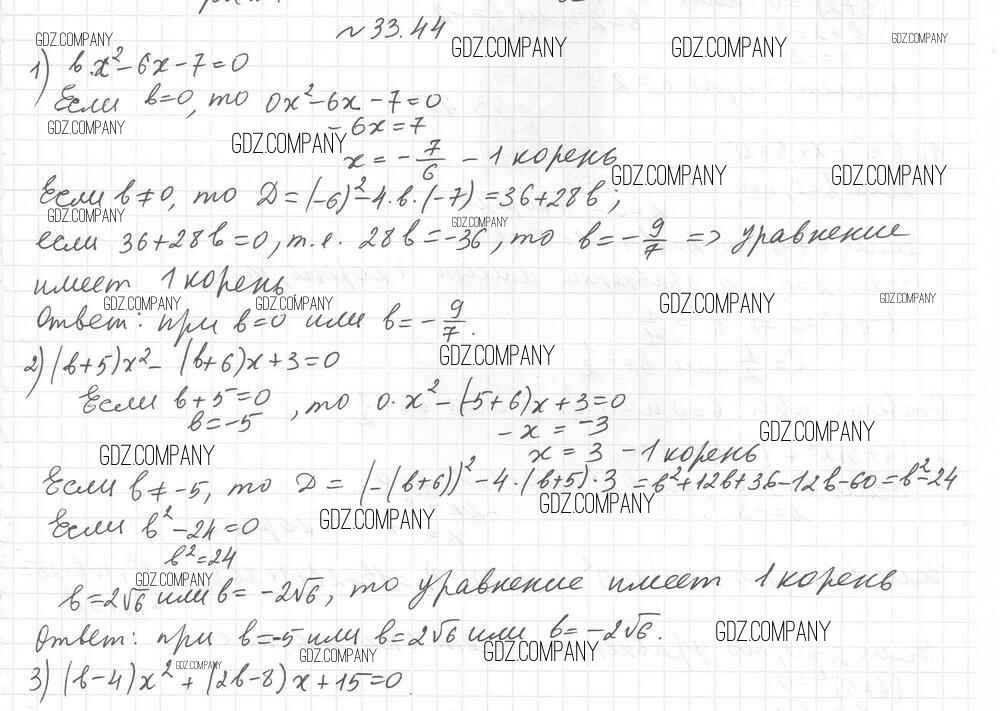 № 33.44
GDZ.COMPANY GDZ.COMPANY GDZ.COMPANY GDZ.COMPANY
1) bx² - 6x - 7 = 0
Если b=0, то 0x² - 6x - 7 = 0
GDZ.COMPANY - 6x = 7
GDZ.COMPANY x = - 7/6 - 1 корень
GDZ.COMPANY GDZ.COMPANY
Если b ≠ 0, то D = (-6)² - 4·b·(-7) = 36 + 28b;
GDZ.COMPANY GDZ.COMPANY
если 36 + 28b = 0, т.е. 28b = -36, то b = - 9/7 => уравнение
имеет 1 корень
GDZ.COMPANY GDZ.COMPANY GDZ.COMPANY GDZ.COMPANY
Ответ: при b=0 или b = - 9/7.
2) (b+5)x² - (b+6)x + 3 = 0
GDZ.COMPANY
Если b+5=0, то 0·x² - (-5+6)x + 3 = 0
b = -5
- x = -3
GDZ.COMPANY
x = 3 - 1 корень
GDZ.COMPANY
Если b ≠ -5, то D = (-(b+6))² - 4·(b+5)·3 = b² + 12b + 36 - 12b - 60 = b² - 24
GDZ.COMPANY GDZ.COMPANY
Если b² - 24 = 0
b² = 24
GDZ.COMPANY
b = 2√6 или b = -2√6, то уравнение имеет 1 корень
Ответ: при b=-5 или b = 2√6 или b = -2√6.
GDZ.COMPANY GDZ.COMPANY GDZ.COMPANY GDZ.COMPANY
3) (b-4)x² + (2b-8)x + 15 = 0